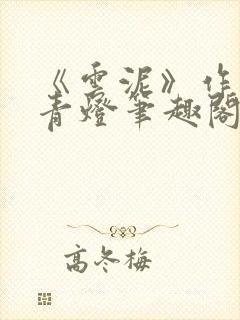 《雲泥》作
青燈筆趣閣
高冬梅